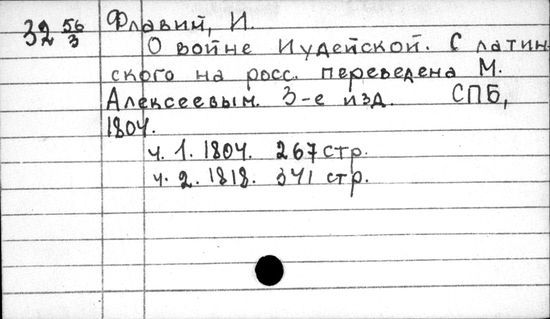 32 56/3 Флавий, И.
О войне Иудейской. С латин
ского на росс. переведена М.
Алексеевым. 3-е изд. СПБ,
1804.
ч. 1. 1804. 267 стр.
ч. 2. 1818. 341 стр.